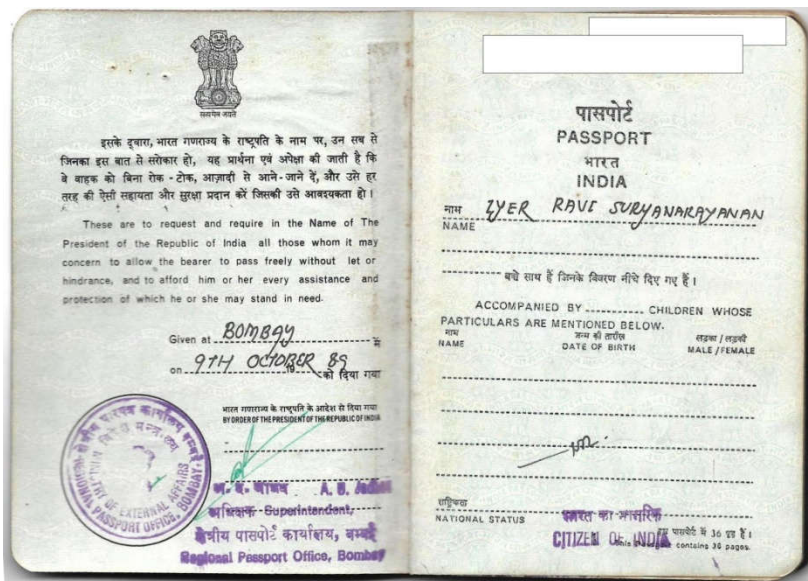 सत्यमेव जयते
इसके द्वारा, भारत गणराज्य के राष्ट्रपति के नाम पर, उन सब से
जिनका इस बात से सरोकार हो, यह प्रार्थना एवं अपेक्षा की जाती है कि
वे वाहक को बिना रोक-टोक, आज़ादी से आने-जाने दें, और उसे हर
तरह की ऐसी सहायता और सुरक्षा प्रदान करें जिसकी उसे आवश्यकता हो।
These are to request and require in the Name of The
President of the Republic of India all those whom it may
concern to allow the bearer to pass freely without let or
hindrance, and to afford him or her every assistance and
protection of which he or she may stand in need.
Given at BOMBAY में
on 9TH OCTOBER 89 को दिया गया
भारत गणराज्य के राष्ट्रपति के आदेश से दिया गया
BY ORDER OF THE PRESIDENT OF THE REPUBLIC OF INDIA
MINISTRY OF EXTERNAL AFFAIRS
REGIONAL PASSPORT OFFICE, BOMBAY
अ. ब. जाधव A. B.
अधिक्षक Superintendent,
क्षेत्रीय पासपोर्ट कार्यालय, बम्बई
Regional Passport Office, Bombay
पासपोर्ट
PASSPORT
भारत
INDIA
नाम IYER RAVI SURYANARAYANAN
NAME
बच्चे साथ हैं जिनके विवरण नीचे दिए गए हैं।
ACCOMPANIED BY CHILDREN WHOSE
PARTICULARS ARE MENTIONED BELOW.
नाम जन्म की तारीख लड़का / लड़की
NAME DATE OF BIRTH MALE / FEMALE
राष्ट्रिकता भारत का नागरिक
NATIONAL STATUS CITIZEN OF INDIA
इस पासपोर्ट में 36 पृष्ठ हैं।
This contains 36 pages.